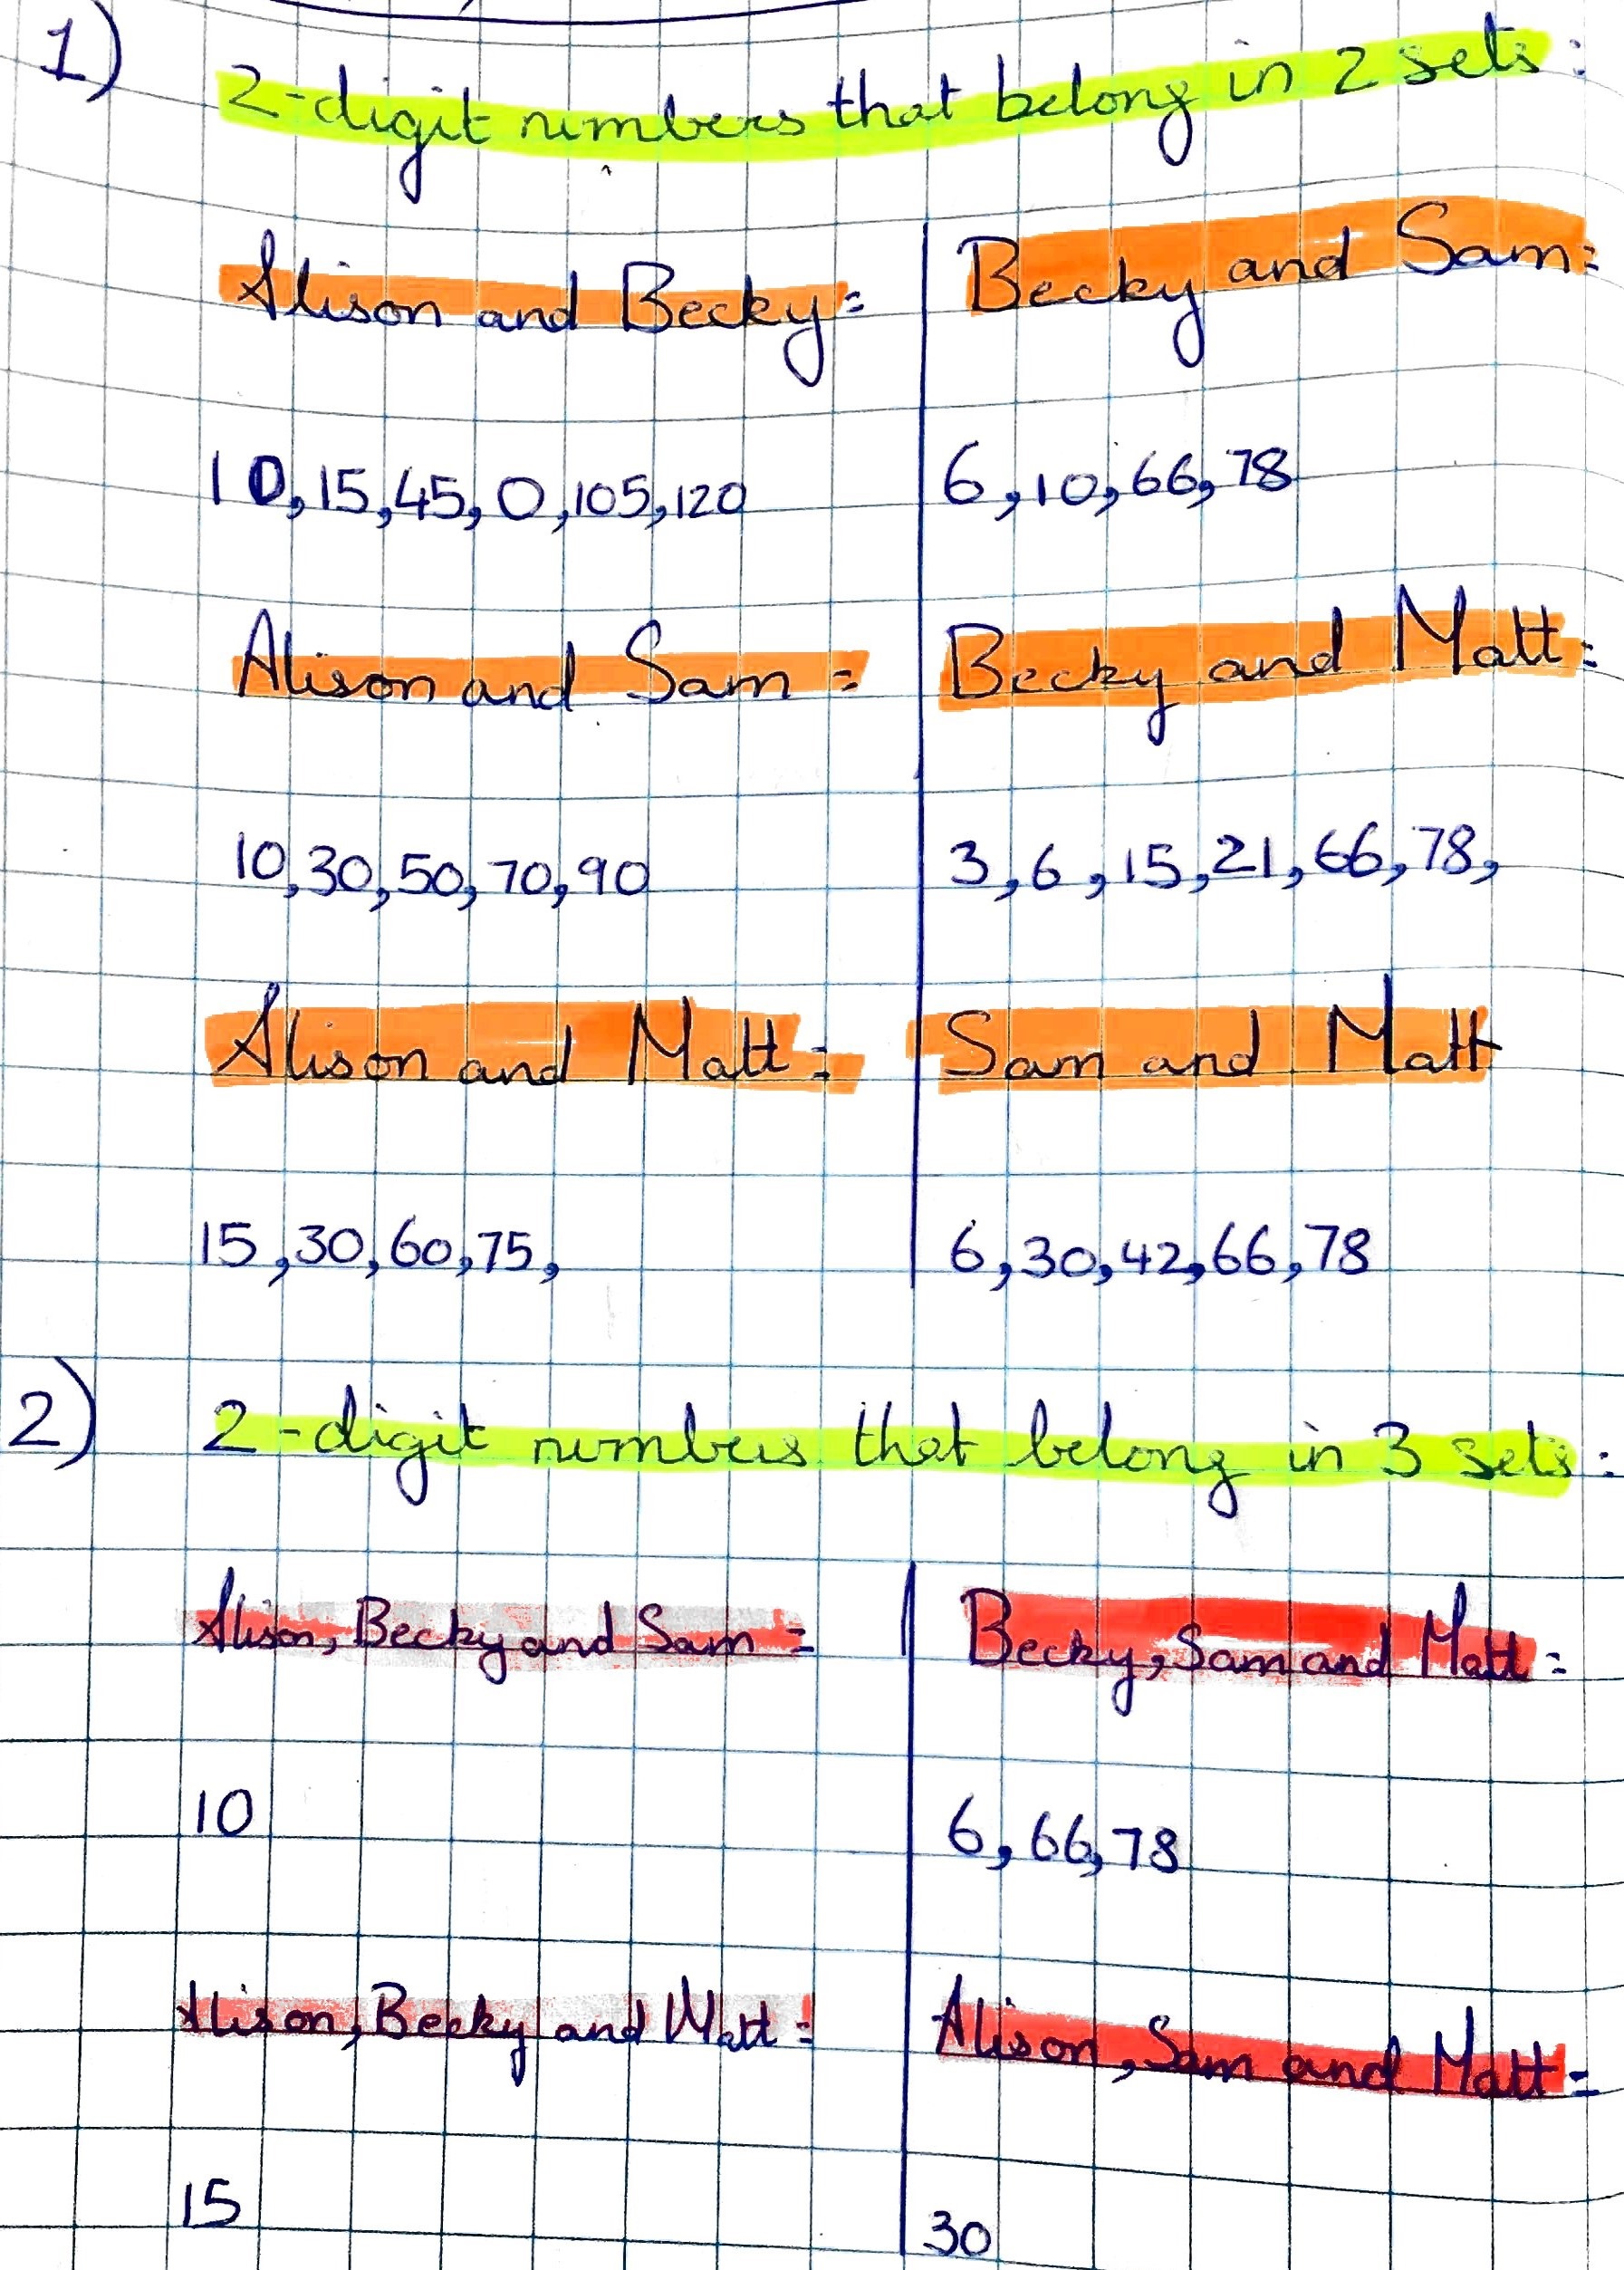 1)
2-digit numbers that belong in 2 sets:
Alison and Becky=
10,15,45,0,105,120
Alison and Sam =
10,30,50,70,90
Alison and Matt=
15,30,60,75,
Becky and Sam=
6,10,66,78
Becky and Matt=
3,6,15,21,66,78,
Sam and Matt
6,30,42,66,78
2)
2-digit numbers that belong in 3 sets:
Alison, Becky and Sam =
10
Alison, Becky and Matt=
15
Becky, Sam and Matt=
6,66,78
Alison, Sam and Matt=
30